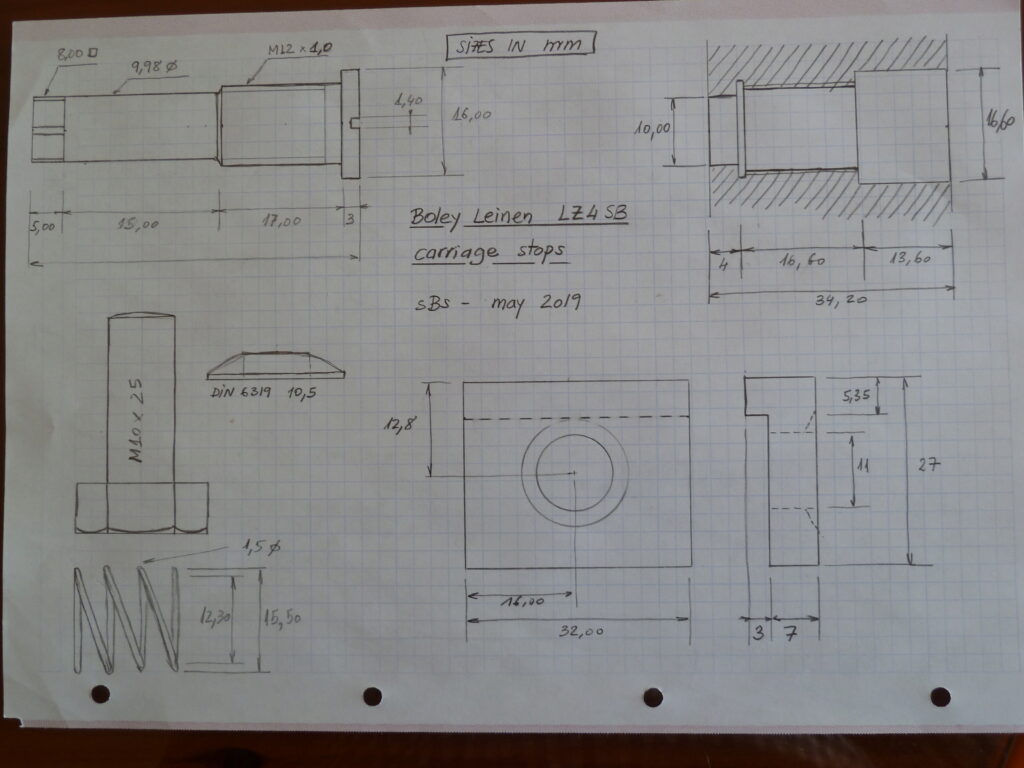 SIZES IN mm
8,00 □
9,98 ø
M12 x 1,0
1,40
16,00
5,00
15,00
17,00
3
10,00
16,60
4
16,60
13,60
34,20
Boley Leinen LZ4SB
carriage stops
SBS - may 2019
M10 x 25
DIN 6319 10,5
1,5 ø
12,30
15,50
12,8
16,00
32,00
5,35
11
27
3
7